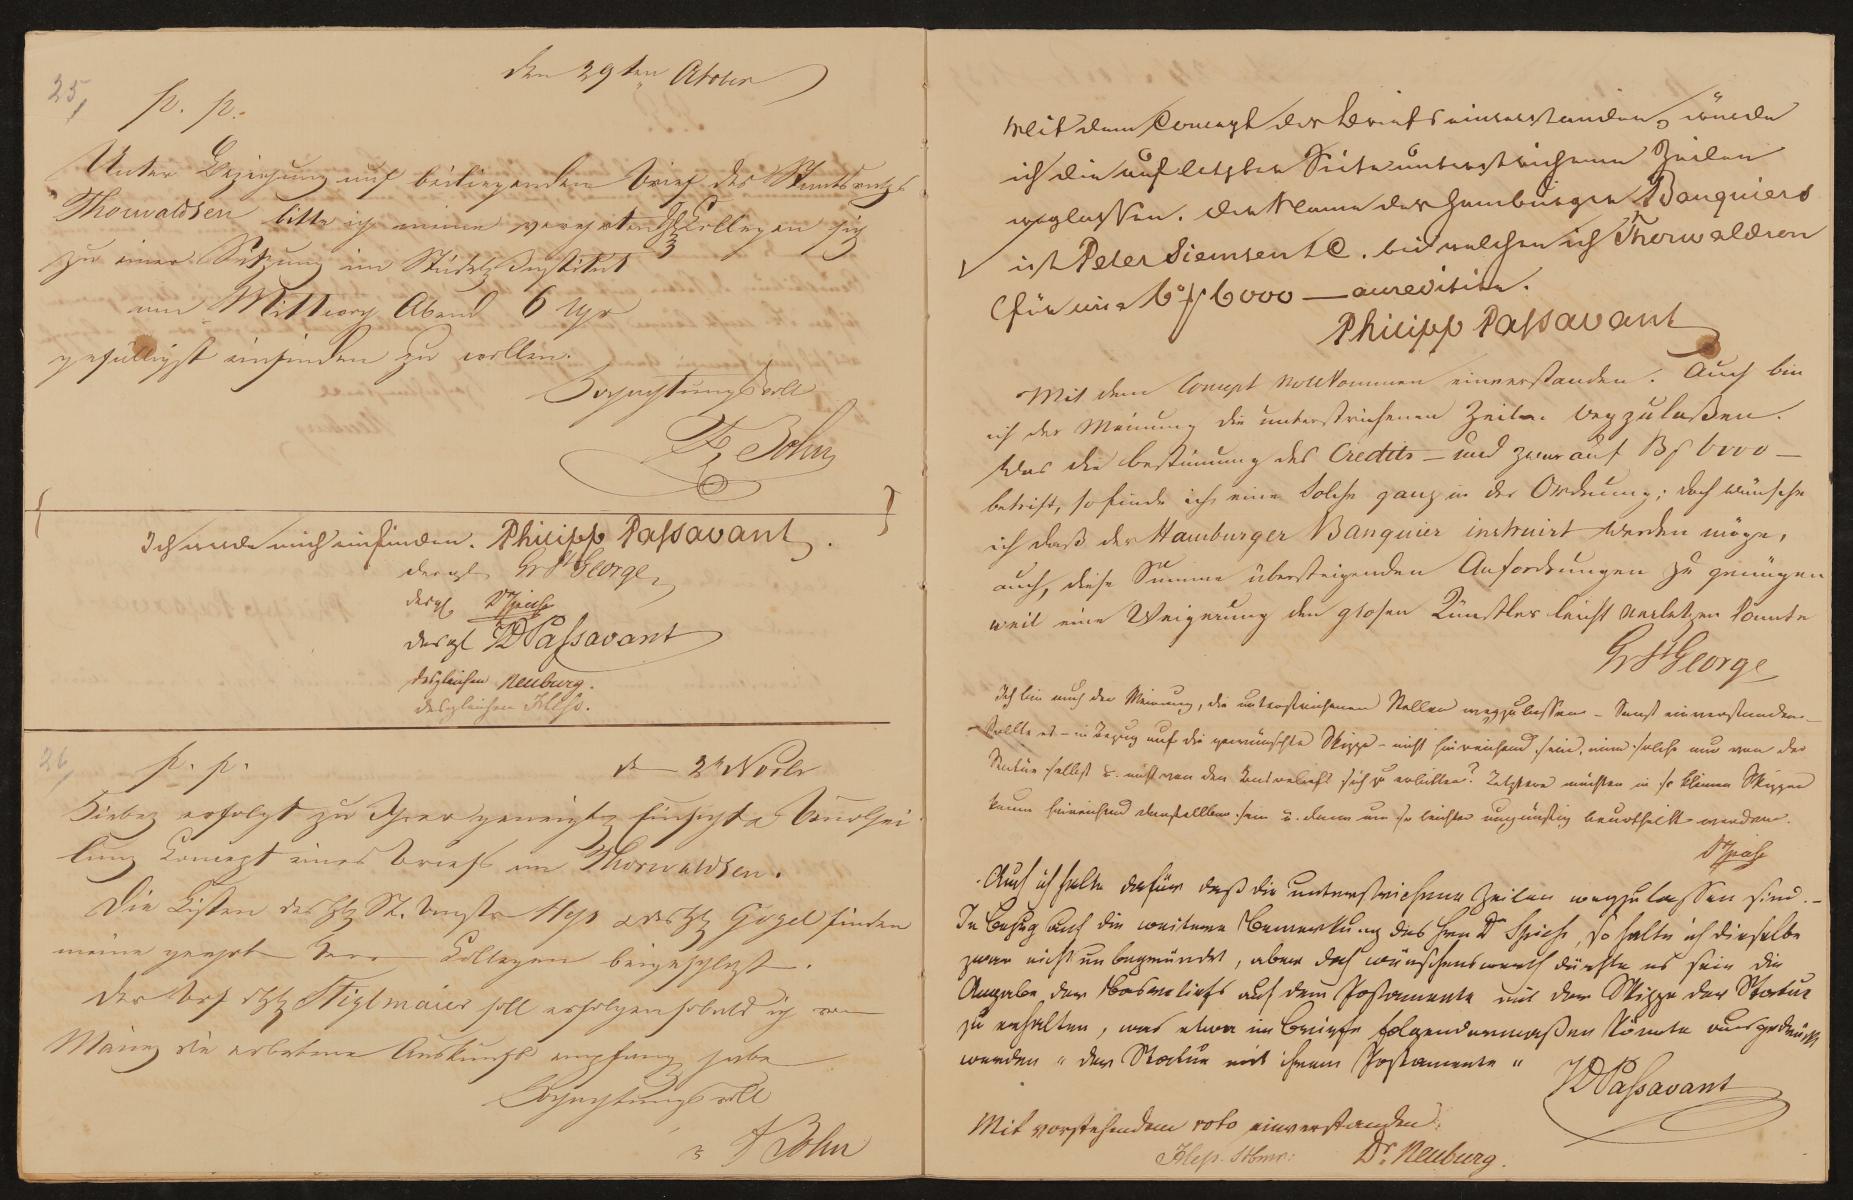 25,
den 29ten October
p. p.
Unter Beziehung auf beiliegenden Brief des Staatsraths
Thorwaldsen bitte ich meine verehrten HH Collegen sich
zu einer Sitzung im Städelschen Institut
am Mittwoch Abend 6 Uhr
gefälligst einfinden zu wollen.
Hochachtungsvoll
Böhm
Ich werde mich einfinden. Philipp Passavant.
dergl. St George
desgl. Dr Spiess
desgl JD Passavant
desgleichen Neuburg.
desgleichen Hess.
26,
p. p.
d 2 Novbr
Hiebey erfolgt zu Ihrer geneigten Einsicht & Beurthei
lung Concept eines Briefs an Thorwaldsen.
Die Listen des H St. Bmstr Hess & des H Gogel finden
meine geehrten Herrn Collegen beigeschlossen.
Der Brf a H Stiglmaier soll erfolgen sobald ich von
Mainz die erbetene Auskunft empfangen habe
Hochachtungsvoll
Böhm
Mit dem Concept des Briefs einverstanden, würde
ich die auf letzter Seite unterstrichenen Zeilen
weglassen. Der Name des Hamburger Banquiers
ist Peter Siemsen & C. bei welchen ich Thorwaldsen
für 6000 — accreditire.
Philipp Passavant
Mit dem Concept vollkommen einverstanden. Auch bin
ich der Meinung die unterstrichenen Zeilen wegzulaßen.
Was die Bestimmung des Credits — und zwar auf 6000 —
betrift, so finde ich eine Solche ganz in der Ordnung; doch wünsche
ich daß der Hamburger Banquier instruirt werden möge,
auch, diese Summe übersteigenden Anfordrungen zu genügen
weil eine Weigerung den grosen Künstler leicht verletzen könnte
St George
Ich bin auch der Meinung, die unterstrichenen Stellen wegzulassen — Sonst einverstanden —
Sollte es — in Bezug auf die gewünschte Skizze — nicht hinreichend sein, eine solche nur von der
Statue selbst u. nicht von den Basreliefs sich zu erbitten? Letztere möchten in so kleinen Skizzen
kaum hinreichend darstellbar sein u. dann um so leichter ungünstig beurtheilt werden.
Dr Spiess
Auch ich halte dafür daß die unterstrichene Zeilen wegzulassen sind. —
In Bezug auf die weitere Bemerkung des Herrn Dr Spiess, so halte ich dieselbe
zwar nicht unbegründet, aber doch wünschenswerth dürfte es sein die
Angabe der Basreliefs auf dem Postamente mit der Skizze der Statue
zu erhalten, was etwa im Briefe folgendermaßen könnte ausgedrückt
werden „ der Statue mit ihrem Postamente "
JD Passavant
Mit vorstehendem voto einverstanden.
Hess. Dr. Neuburg.